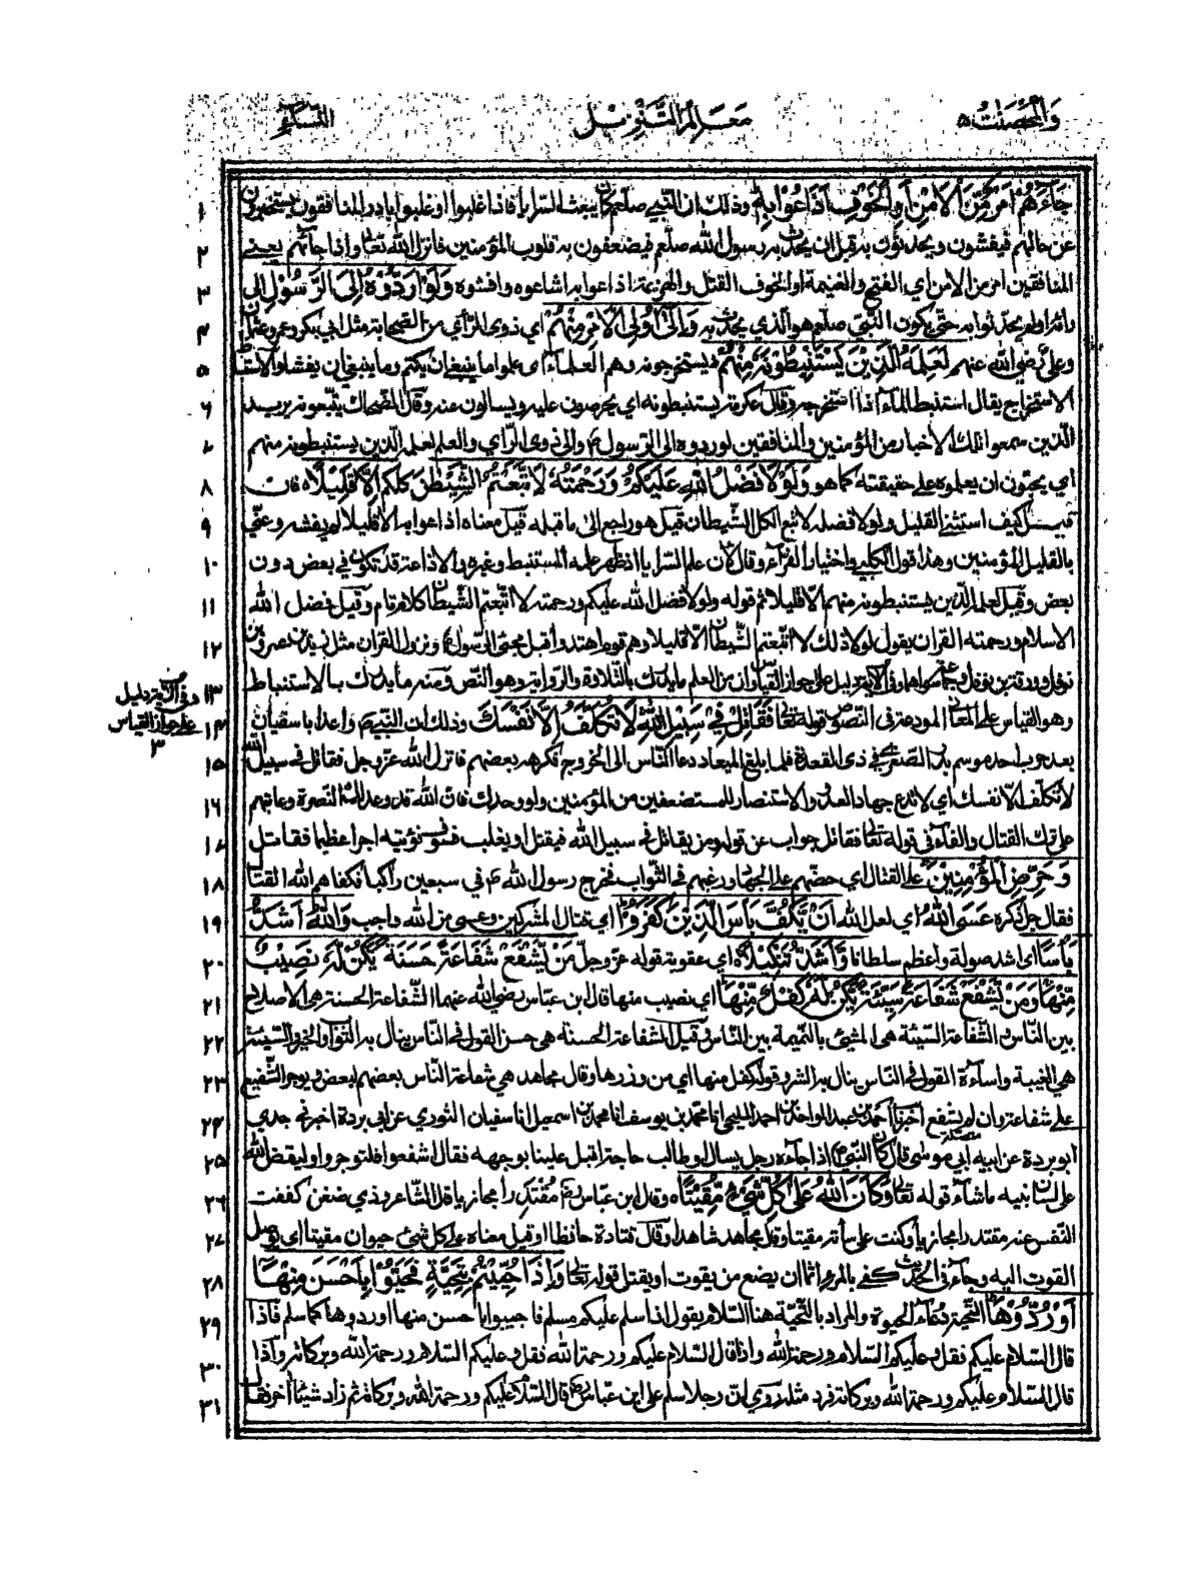 والمحصنت ٥ معالم التنزيل النساء
جَاءَهُمْ أَمْرٌ مِّنَ الْأَمْنِ أَوِ الْخَوْفِ أَذَاعُوا بِهٖ وذلك ان النبي صلعم كان يبعث السرايا فاذا غلبوا او غلبوا بادر المنافقون يستخبرون ١
عن حالهم فيفشون ويحدثون به قبل ان يحدث به رسول الله صلعم فيضعفون به قلوب المؤمنين فانزل الله تعالى واذا جاءهم يعني ٢
المنافقين امر من الامن اي الفتح والغنيمة او الخوف القتل والهزيمة اذاعوا به اشاعوه وافشوه وَلَوْ رَدُّوهُ إِلَى الرَّسُولِ الى ٣
رائه ولم يحدثوا به حتى يكون النبي صلعم هو الذي يحدث به وَإِلَىٰ أُولِي الْأَمْرِ مِنْهُمْ اي ذوي الرأي من الصحابة مثل ابي بكر وعمر وعثمان ٤
وعلي رضي الله عنهم لَعَلِمَهُ الَّذِينَ يَسْتَنبِطُونَهُ مِنْهُمْ يستخرجونه وهم العلماء اي علموا ما ينبغي ان يكتم وما ينبغي ان يفشا والاستنباط ٥
الاستخراج يقال استنبط الماء اذا استخرجه وقال عكرمة يستنبطونه اي يحرصون عليه ويسالون عنه وقال الضحاك يتبعونه يريد ٦
الذين سمعوا تلك الاخبار من المؤمنين والمنافقين لو ردوه الى الرسول وإلى ذوي الرأي والعلم لعلمه الذين يستنبطونه منهم ٧
اي يحبون ان يعلموه على حقيقته كما هو وَلَوْلَا فَضْلُ اللهِ عَلَيْكُمْ وَرَحْمَتُهُ لَاتَّبَعْتُمُ الشَّيْطٰنَ كلكم إِلَّا قَلِيلًا ٥ فان ٨
قيل كيف استثنى القليل ولولا فضله لاتبع الكل الشيطان قيل هو راجع الى ما قبله قيل معناه اذاعوا به الا قليلا لم يفشه وعنى ٩
بالقليل المؤمنين وهذا قول الكلبي واختيار الفراء وقال لان علم السرايا اذا ظهر علمه المستنبط وغيره والاذاعة قد تكون في بعض دون ١٠
بعض وقيل لعلمه الذين يستنبطونه منهم الا قليلا ثم قوله ولولا فضل الله عليكم ورحمته لاتبعتم الشيطان كلام تام وقيل فضل الله ١١
الاسلام ورحمته القران يقول لولا ذلك لاتبعتم الشيطان الا قليلا وهم قوم اهتدوا قبل مجيئ الرسول ونزول القران مثل زيد بن عمرو بن ١٢
نفيل وورقة بن نوفل وجماعة سواهما وفي الآية دليل على جواز القياس وان من العلم ما يدرك بالتلاوة والرواية وهو النص ومنه ما يدرك بالاستنباط ١٣
وفي الآية دليل على جواز القياس ١٣
وهو القياس على المعاني المودعة في النصوص قوله تعالى فَقَاتِلْ فِي سَبِيلِ اللهِ لَا تُكَلَّفُ إِلَّا نَفْسَكَ وذلك ان النبي واعد ابا سفيان ١٤
بعد حرب احد موسم بدر الصغرى في ذي القعدة فلما بلغ الميعاد دعا الناس الى الخروج فكرهه بعضهم فانزل الله عز وجل فقاتل في سبيل الله ١٥
لا تكلف الا نفسك اي لا تدع جهاد العدو والاستنصار للمستضعفين من المؤمنين ولو وحدك فان الله قد وعدك النصرة وعاتبهم ١٦
على ترك القتال والفاء في قوله تعالى فقاتل جواب عن قوله ومن يقاتل في سبيل الله فيقتل او يغلب فسوف نؤتيه اجرا عظيما فقاتل ١٧
وَحَرِّضِ الْمُؤْمِنِينَ على القتال اي حضهم على الجهاد ورغبهم في الثواب فخرج رسول الله في سبعين راكبا فكفاهم الله القتال ١٨
فقال جل ذكره عَسَى اللهُ اي لعل الله أَنْ يَّكُفَّ بَأْسَ الَّذِينَ كَفَرُوا اي قتال المشركين وعسى من الله واجب وَاللهُ أَشَدُّ ١٩
بَأْسًا اي اشد صولة واعظم سلطانا وَّأَشَدُّ تَنكِيلًا ٥ اي عقوبة قوله عز وجل مَنْ يَّشْفَعْ شَفَاعَةً حَسَنَةً يَّكُنْ لَّهُ نَصِيبٌ ٢٠
مِّنْهَا وَمَنْ يَّشْفَعْ شَفَاعَةً سَيِّئَةً يَّكُنْ لَّهُ كِفْلٌ مِّنْهَا اي نصيب منها قال ابن عباس رضي الله عنهما الشفاعة الحسنة هي الاصلاح ٢١
بين الناس والشفاعة السيئة هي المشي بالنميمة بين الناس وقيل الشفاعة الحسنة هي حسن القول في الناس ينال به الثواب والخير والسيئة ٢٢
هي الغيبة واساءة القول في الناس ينال به الشر وقوله كفل منها اي من وزرها وقال مجاهد هي شفاعة الناس بعضهم لبعض ويوجر الشفيع ٢٣
على شفاعته وان لم يشفع اخبرنا احمد بن عبد الواحد بن احمد المليحي انا محمد بن يوسف انا محمد بن اسمعيل انا سفيان الثوري عن ابي بردة اخبرني جدي ٢٤
ابو بردة عن ابيه ابي موسى قال كان النبي اذا جاءه رجل يسال او طالب حاجة اقبل علينا بوجهه فقال اشفعوا فلتوجروا وليقض الله ٢٥
على لسان نبيه ماشاء قوله تعالى وَكَانَ اللهُ عَلَىٰ كُلِّ شَيْءٍ مُّقِيتًا ٥ وقال ابن عباس مقتدرا مجازيا قال الشاعر وذي ضغن كففت ٢٦
النفس عنه مقتدرا مجازيا وكنت على مساءته مقيتا وقال مجاهد شاهدا وقال قتادة حافظا وقيل معناه على كل شيء حيوان مقيتا اي يوصل ٢٧
القوت اليه وجاء في الحديث كفى بالمرء اثما ان يضيع من يقوت او يقيت قوله تعالى وَإِذَا حُيِّيتُمْ بِتَحِيَّةٍ فَحَيُّوا بِأَحْسَنَ مِنْهَا ٢٨
أَوْ رُدُّوهَا التحية دعاء الحيوة والمراد بالتحية هنا السلام يقول اذا سلم عليكم مسلم فاجيبوا باحسن منها او ردوها كما سلم فاذا ٢٩
قال السلام عليكم فقل وعليكم السلام ورحمة الله واذا قال السلام عليكم ورحمة الله فقل وعليكم السلام ورحمة الله وبركاته واذا ٣٠
قال السلام عليكم ورحمة الله وبركاته فرد مثله روي ان رجلا سلم على ابن عباس قال السلام عليكم ورحمة الله وبركاته ثم زاد شيئا اخر فقال ٣١